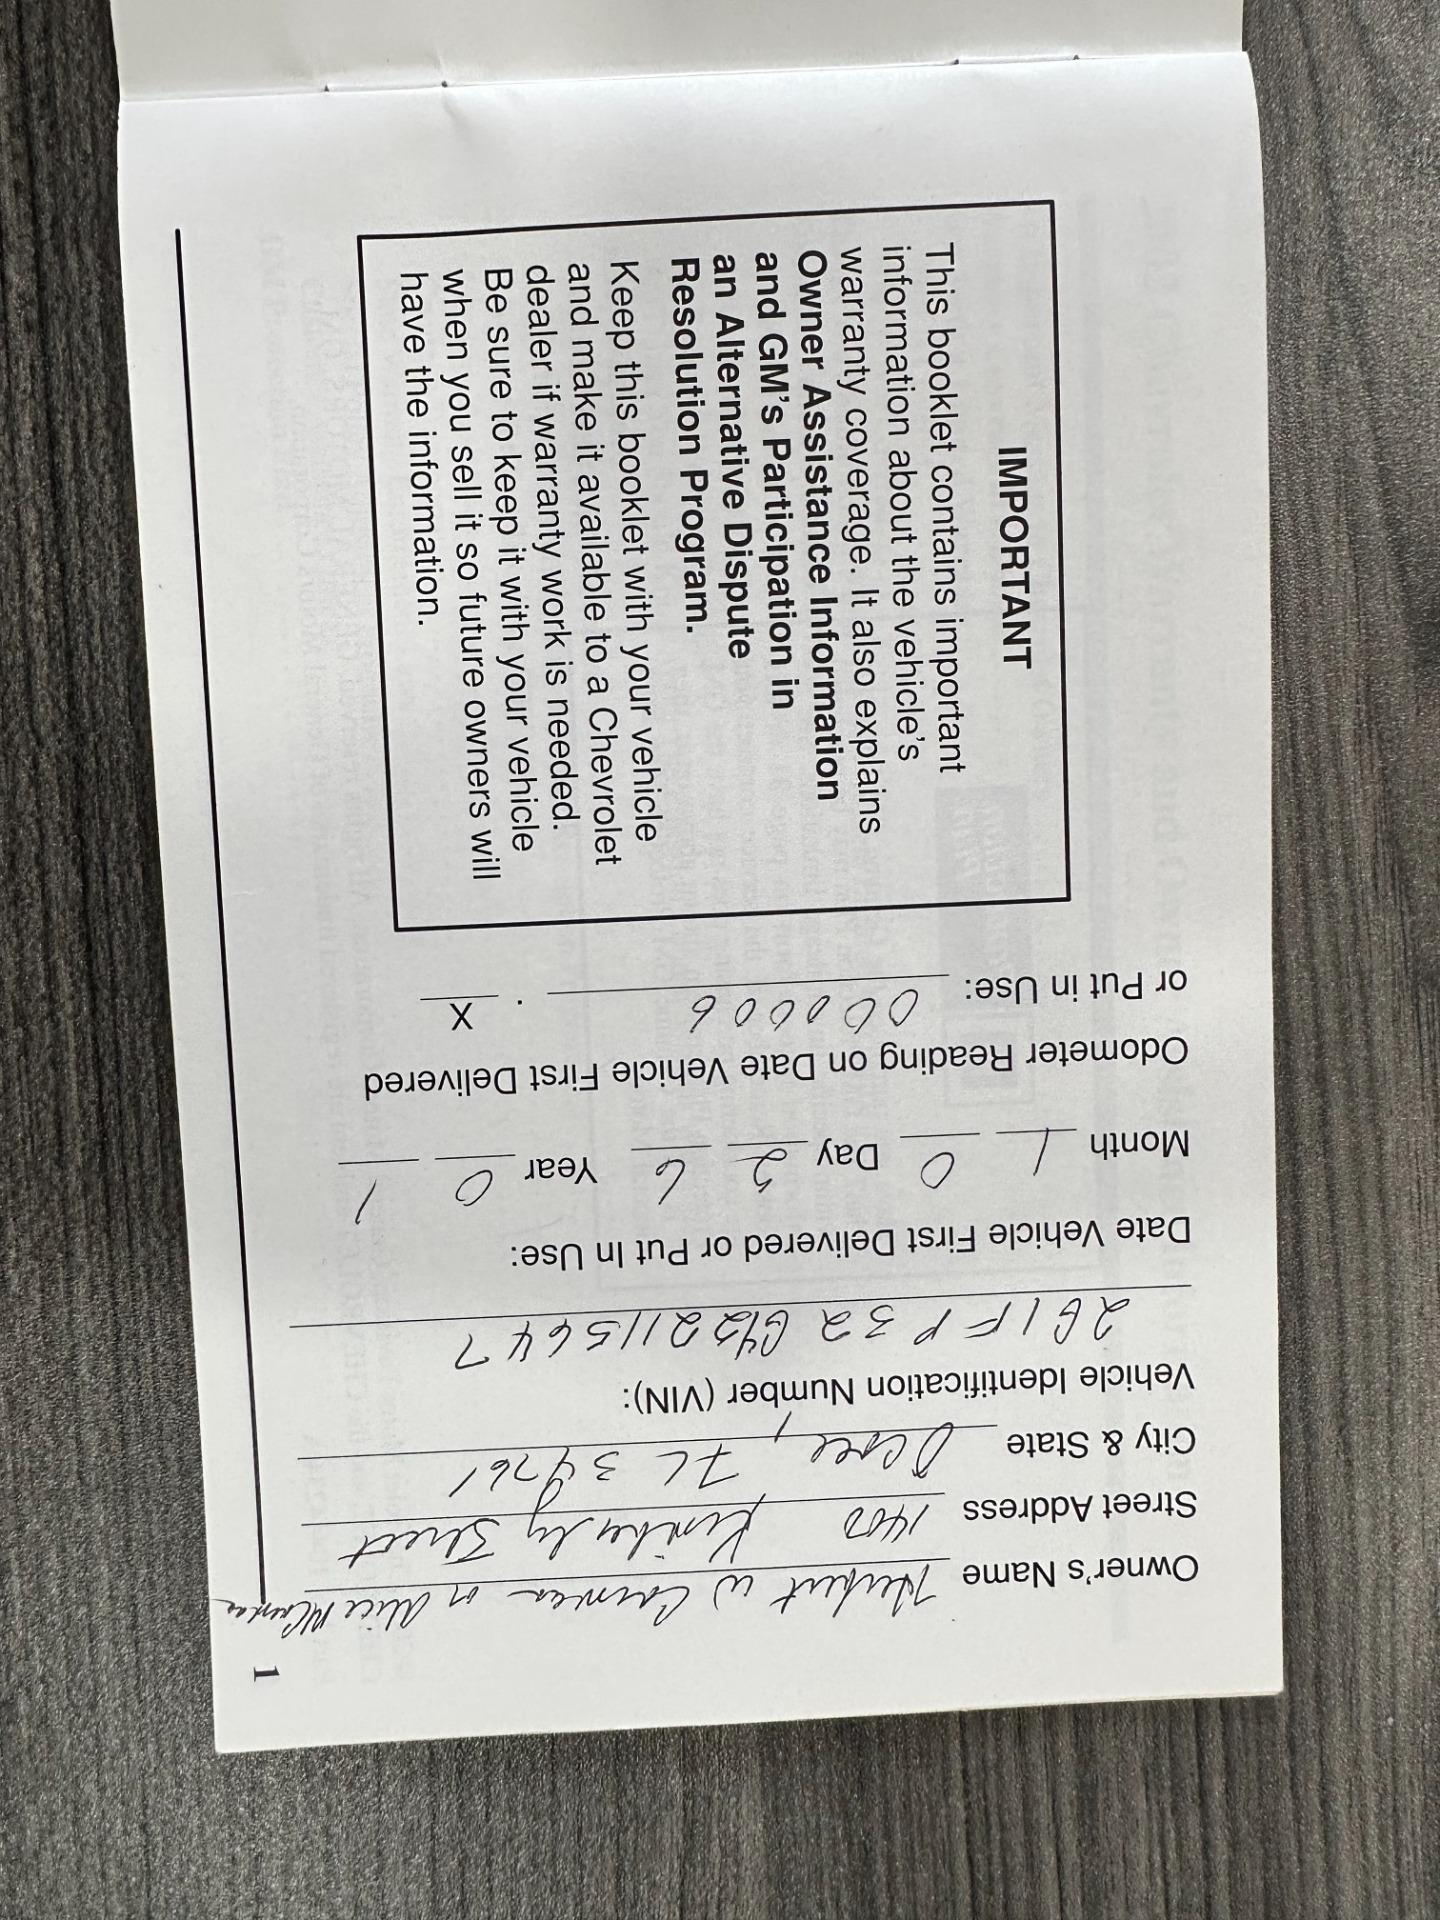 IMPORTANT
This booklet contains important
information about the vehicle's
warranty coverage. It also explains
Owner Assistance Information
and GM's Participation in
an Alternative Dispute
Resolution Program.
Keep this booklet with your vehicle
and make it available to a Chevrolet
dealer if warranty work is needed.
Be sure to keep it with your vehicle
when you sell it so future owners will
have the information.
Owner's Name Herbert W or Alice M
Street Address 1400 Kimberly Street
City & State Ocoee, FL 34761
Vehicle Identification Number (VIN):
Date Vehicle First Delivered or Put In Use:
Month 1 0 Day 2 6 Year 0 1
Odometer Reading on Date Vehicle First Delivered
or Put in Use: 000006 . X
1